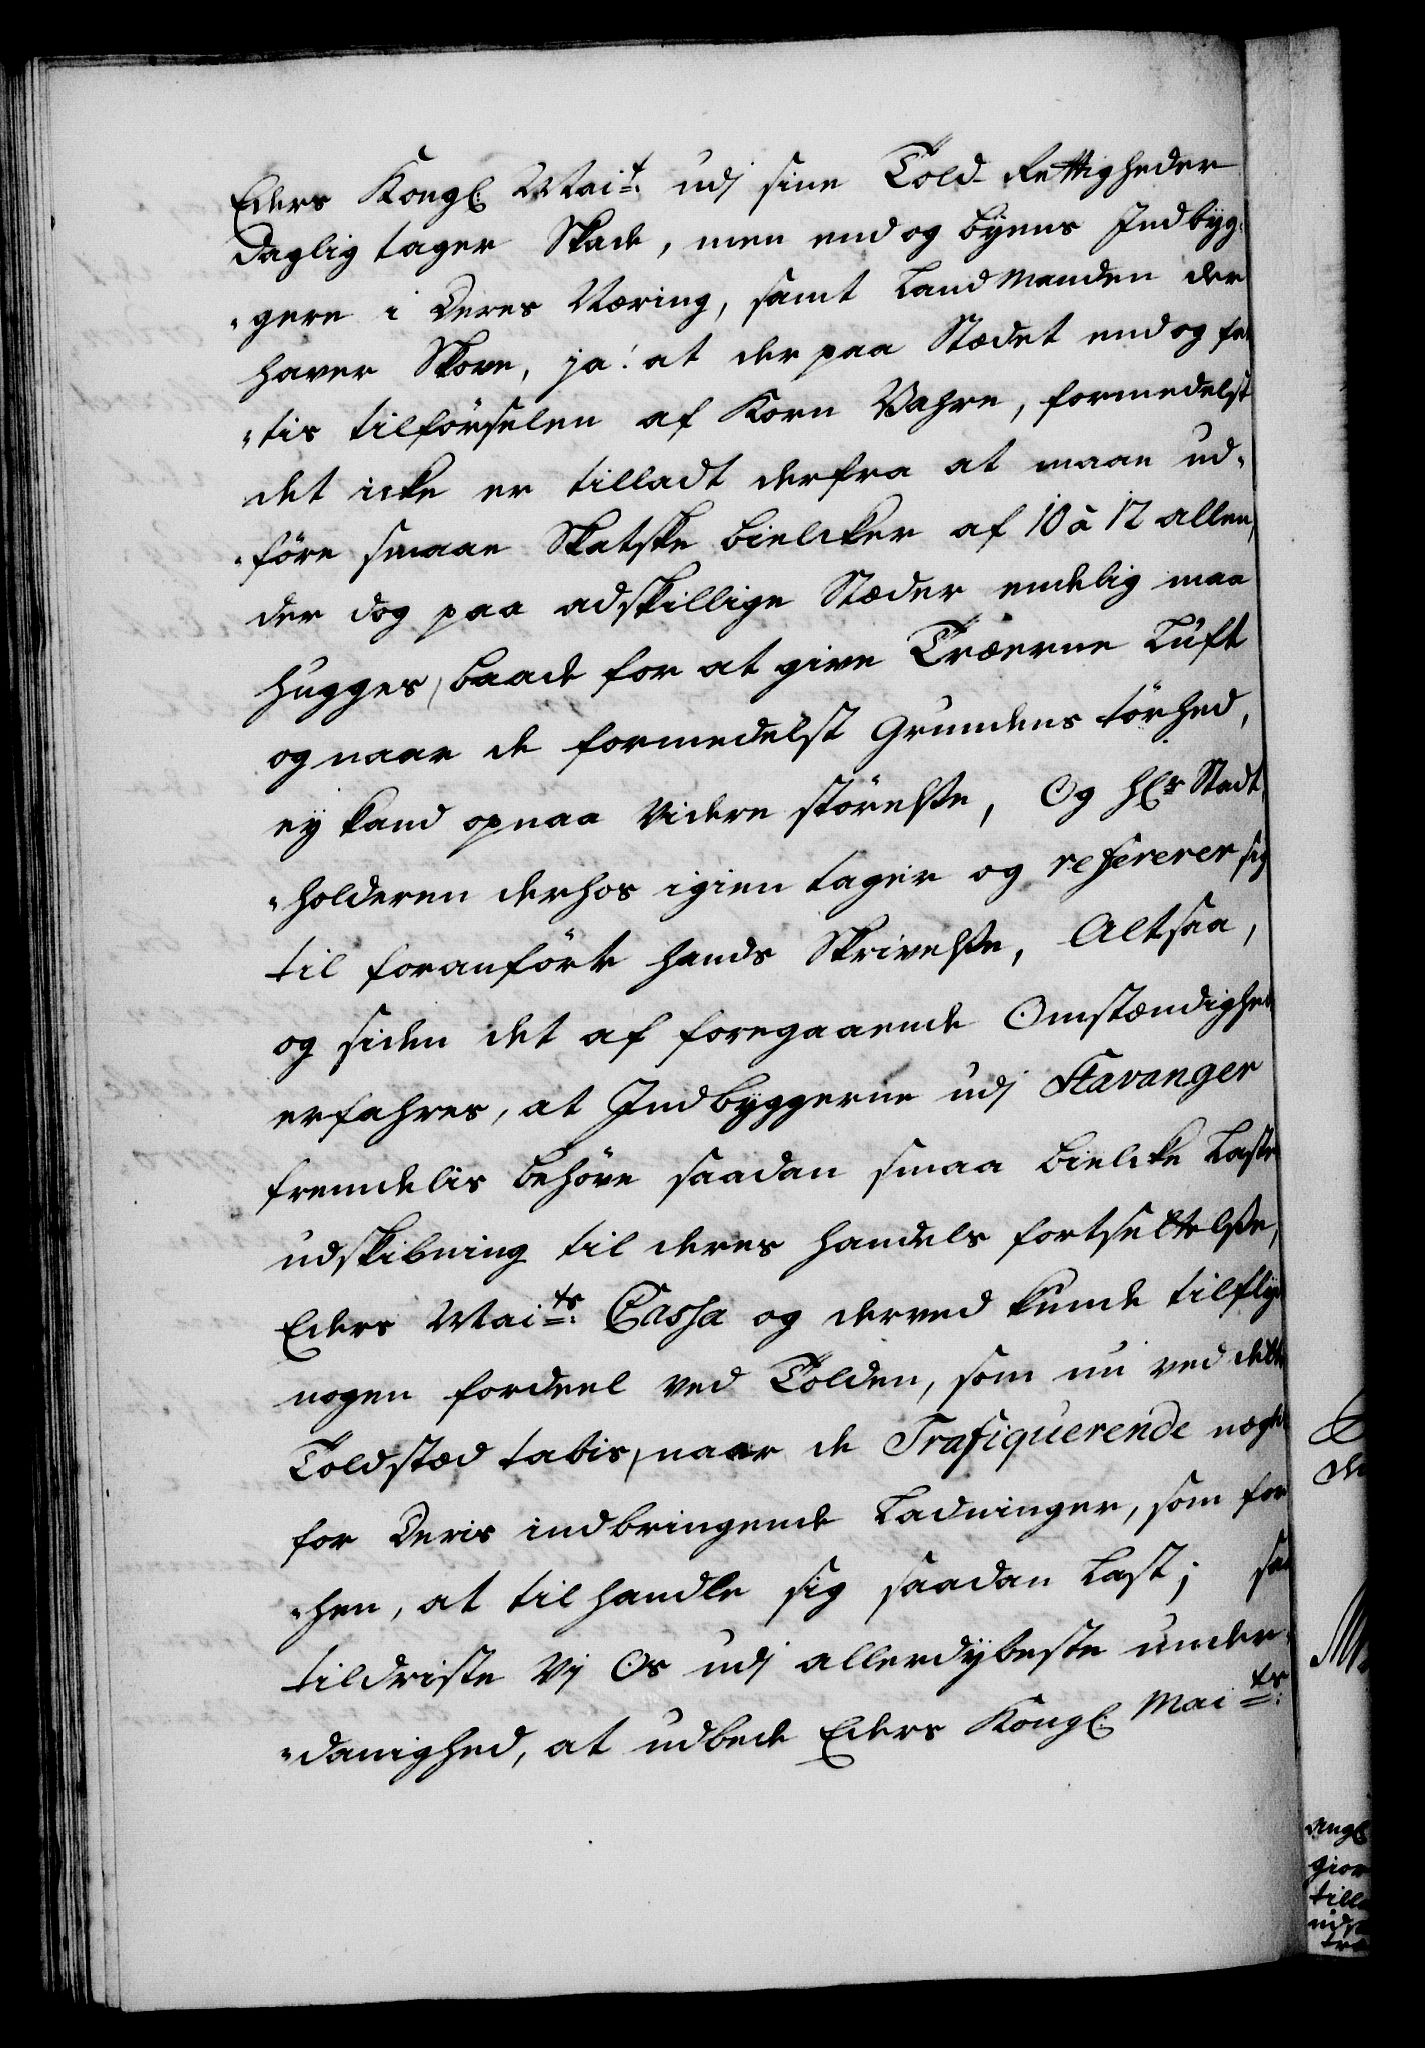 Eders Kongl: Mai.t udj sine Told-Rettigheder
daglig tager Skade, men end og Byens Indbyg-
"gere i deres Næring, samt Landmanden der
haver Skove, ja! at der paa Stædet end og fat
"tis tilførselen af Korn Vahre, formedelst
det icke er tilladt derfra at maae ud-
"føre smaae Skatske Bielcker af 10 à 12 allen,
der dog paa adskillige Stæder endelig maa
hugges, baade for at give Træerne Luft
og naar de formedelst Grundens törhed,
ey kand opnaa videre störelse, Og Hr Stadt-
"holderen derhos igien tager og refererer sig
til foranförte hands Skrivelse, Altsaa,
og siden det af foregaaende Omstændighed
erfahres, at Indbyggerne udj Stavanger
fremdelis behöve saadan smaa Bielcke Lastes
udskibning til deres handels fortsettelse,
Eders Mai.ts Cassa og derved kunde tilflyde
nogen fordeel ved Tolden, som nu ved dette
Toldstæd tabis, naar de Trafiquerende nægtes
for deris indbringende Ladninger, som for
"hen, at tilhandle sig saadan Last; saa
tildriste Vj Os udj allerdybeste under-
"danighed, at udbede Eders Kongl: Mai.ts